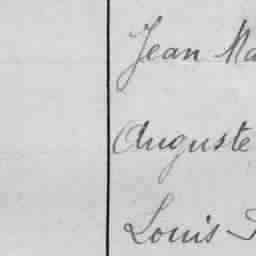 Jean Ma
Auguste
Louis